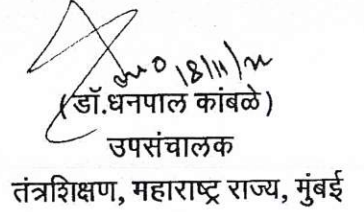 18/11/2
(डॉ.धनपाल कांबळे)
उपसंचालक
तंत्रशिक्षण, महाराष्ट्र राज्य, मुंबई